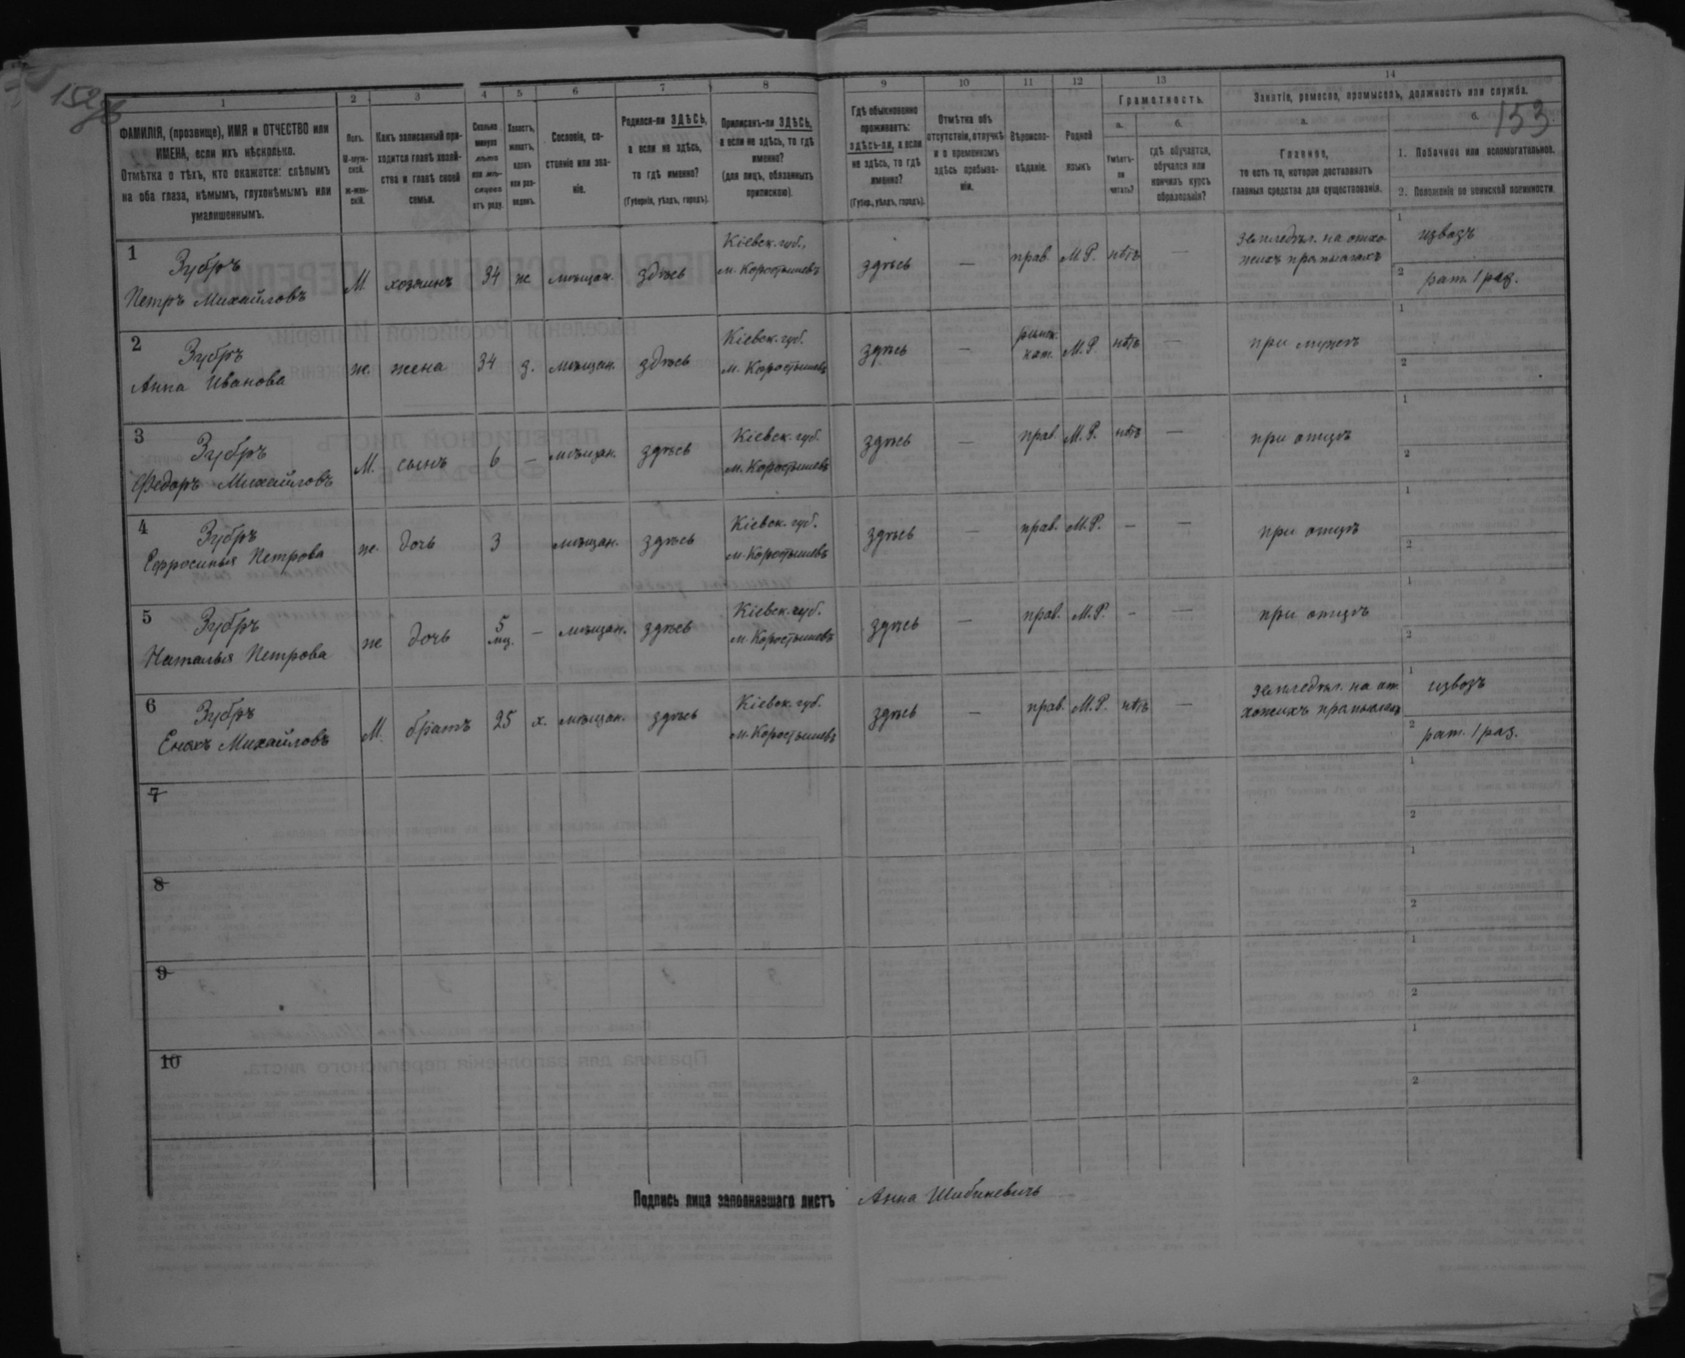 153
1
2
3
4
5
6
7
8
9
10
11
12
13
14
ФАМИЛІЯ, (прозвище), ИМЯ и ОТЧЕСТВО или
ИМЕНА, если ихъ нѣсколько.
Отмѣтка о тѣхъ, кто окажется: слѣпымъ
на оба глаза, нѣмымъ, глухонѣмымъ или
умалишеннымъ.
Полъ.
М-муж-
ской.
Ж-жен-
скій.
Какъ записанный при-
ходится главѣ хозяй-
ства и главѣ своей
семьи.
Сколько
минуло
лѣтъ
или мѣ-
сяцевъ
отъ роду.
Холостъ,
женатъ,
вдовъ
или раз-
веденъ.
Сословіе, со-
стояніе или зва-
ніе.
Родился-ли ЗДѢСЬ,
а если не здѣсь,
то гдѣ именно?
(Губернія, уѣздъ, городъ).
Приписанъ-ли ЗДѢСЬ,
а если не здѣсь, то гдѣ
именно?
(для лицъ, обязанныхъ
припискою).
Гдѣ обыкновенно
проживаетъ:
здѣсь-ли, а если
не здѣсь, то гдѣ
именно?
(Губер., уѣздъ, городъ).
Отмѣтка объ
отсутствіи, отлучкѣ
и о временномъ
здѣсь пребыва-
ніи.
Вѣроиспо-
вѣданіе.
Родной
языкъ
Грамотность.
а.
Умѣетъ-
ли
читать?
б.
гдѣ обучается,
обучался или
кончилъ курсъ
образованія?
Занятіе, ремесло, промыселъ, должность или служба.
а.
Главное,
то есть то, которое доставляетъ
главныя средства для существованія.
б.
1. Побочное или вспомогательное.
2. Положеніе по воинской повинности.
1
Зубръ
Петръ Михайловъ
М
хозяинъ
34
ж
мѣщан.
здѣсь
Кіевск. губ.,
м. Коростышевъ
здѣсь
—
прав.
М.Р.
нѣтъ
—
1
извозъ
2
рат. 1 раз.
2
Зубръ
Анна Иванова
ж
жена
34
з.
мѣщан.
здѣсь
Кіевск. губ.
м. Коростышевъ
здѣсь
—
римск.
кат.
М.Р.
нѣтъ
—
при мужѣ
1
2
3
Зубръ
Федоръ Михайловъ
М.
сынъ
6
—
мѣщан.
здѣсь
Кіевск. губ.
м. Коростышевъ
здѣсь
—
прав.
М.Р.
нѣтъ
—
при отцѣ
1
2
4
Зубръ
Ефросинья Петрова
ж.
дочь
3
мѣщан.
здѣсь
Кіевск. губ.
м. Коростышевъ
здѣсь
—
прав.
М.Р.
—
—
при отцѣ
1
2
5
Зубръ
Наталья Петрова
ж
дочь
5
мц.
—
мѣщан.
здѣсь
Кіевск. губ.
м. Коростышевъ
здѣсь
—
прав.
М.Р.
—
—
при отцѣ
1
2
6
Зубръ
Енохъ Михайловъ
М.
братъ
25
х.
мѣщан.
здѣсь
Кіевск. губ.
м. Коростышевъ
здѣсь
—
прав.
М.Р.
нѣтъ
—
1
извозъ
2
рат. 1 раз.
7
1
2
8
1
2
9
1
2
10
1
2
Подпись лица заполнявшаго листъ
Анна